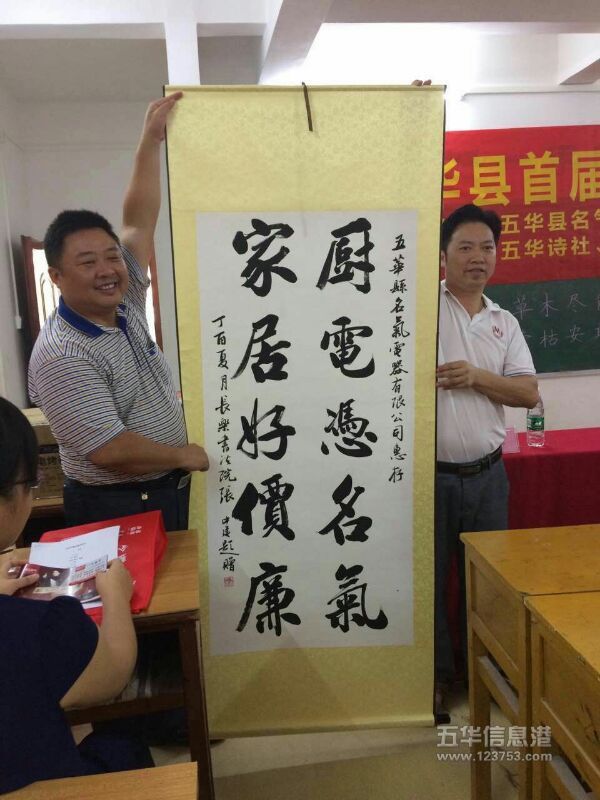 五華縣名氣電器有限公司惠存
厨電憑名氣
家居好價廉
丁酉夏月長樂書法院張
題贈
华县首届
五华县名气
五华诗社、
草木尽
枯安
五华信息港
www.123753.com